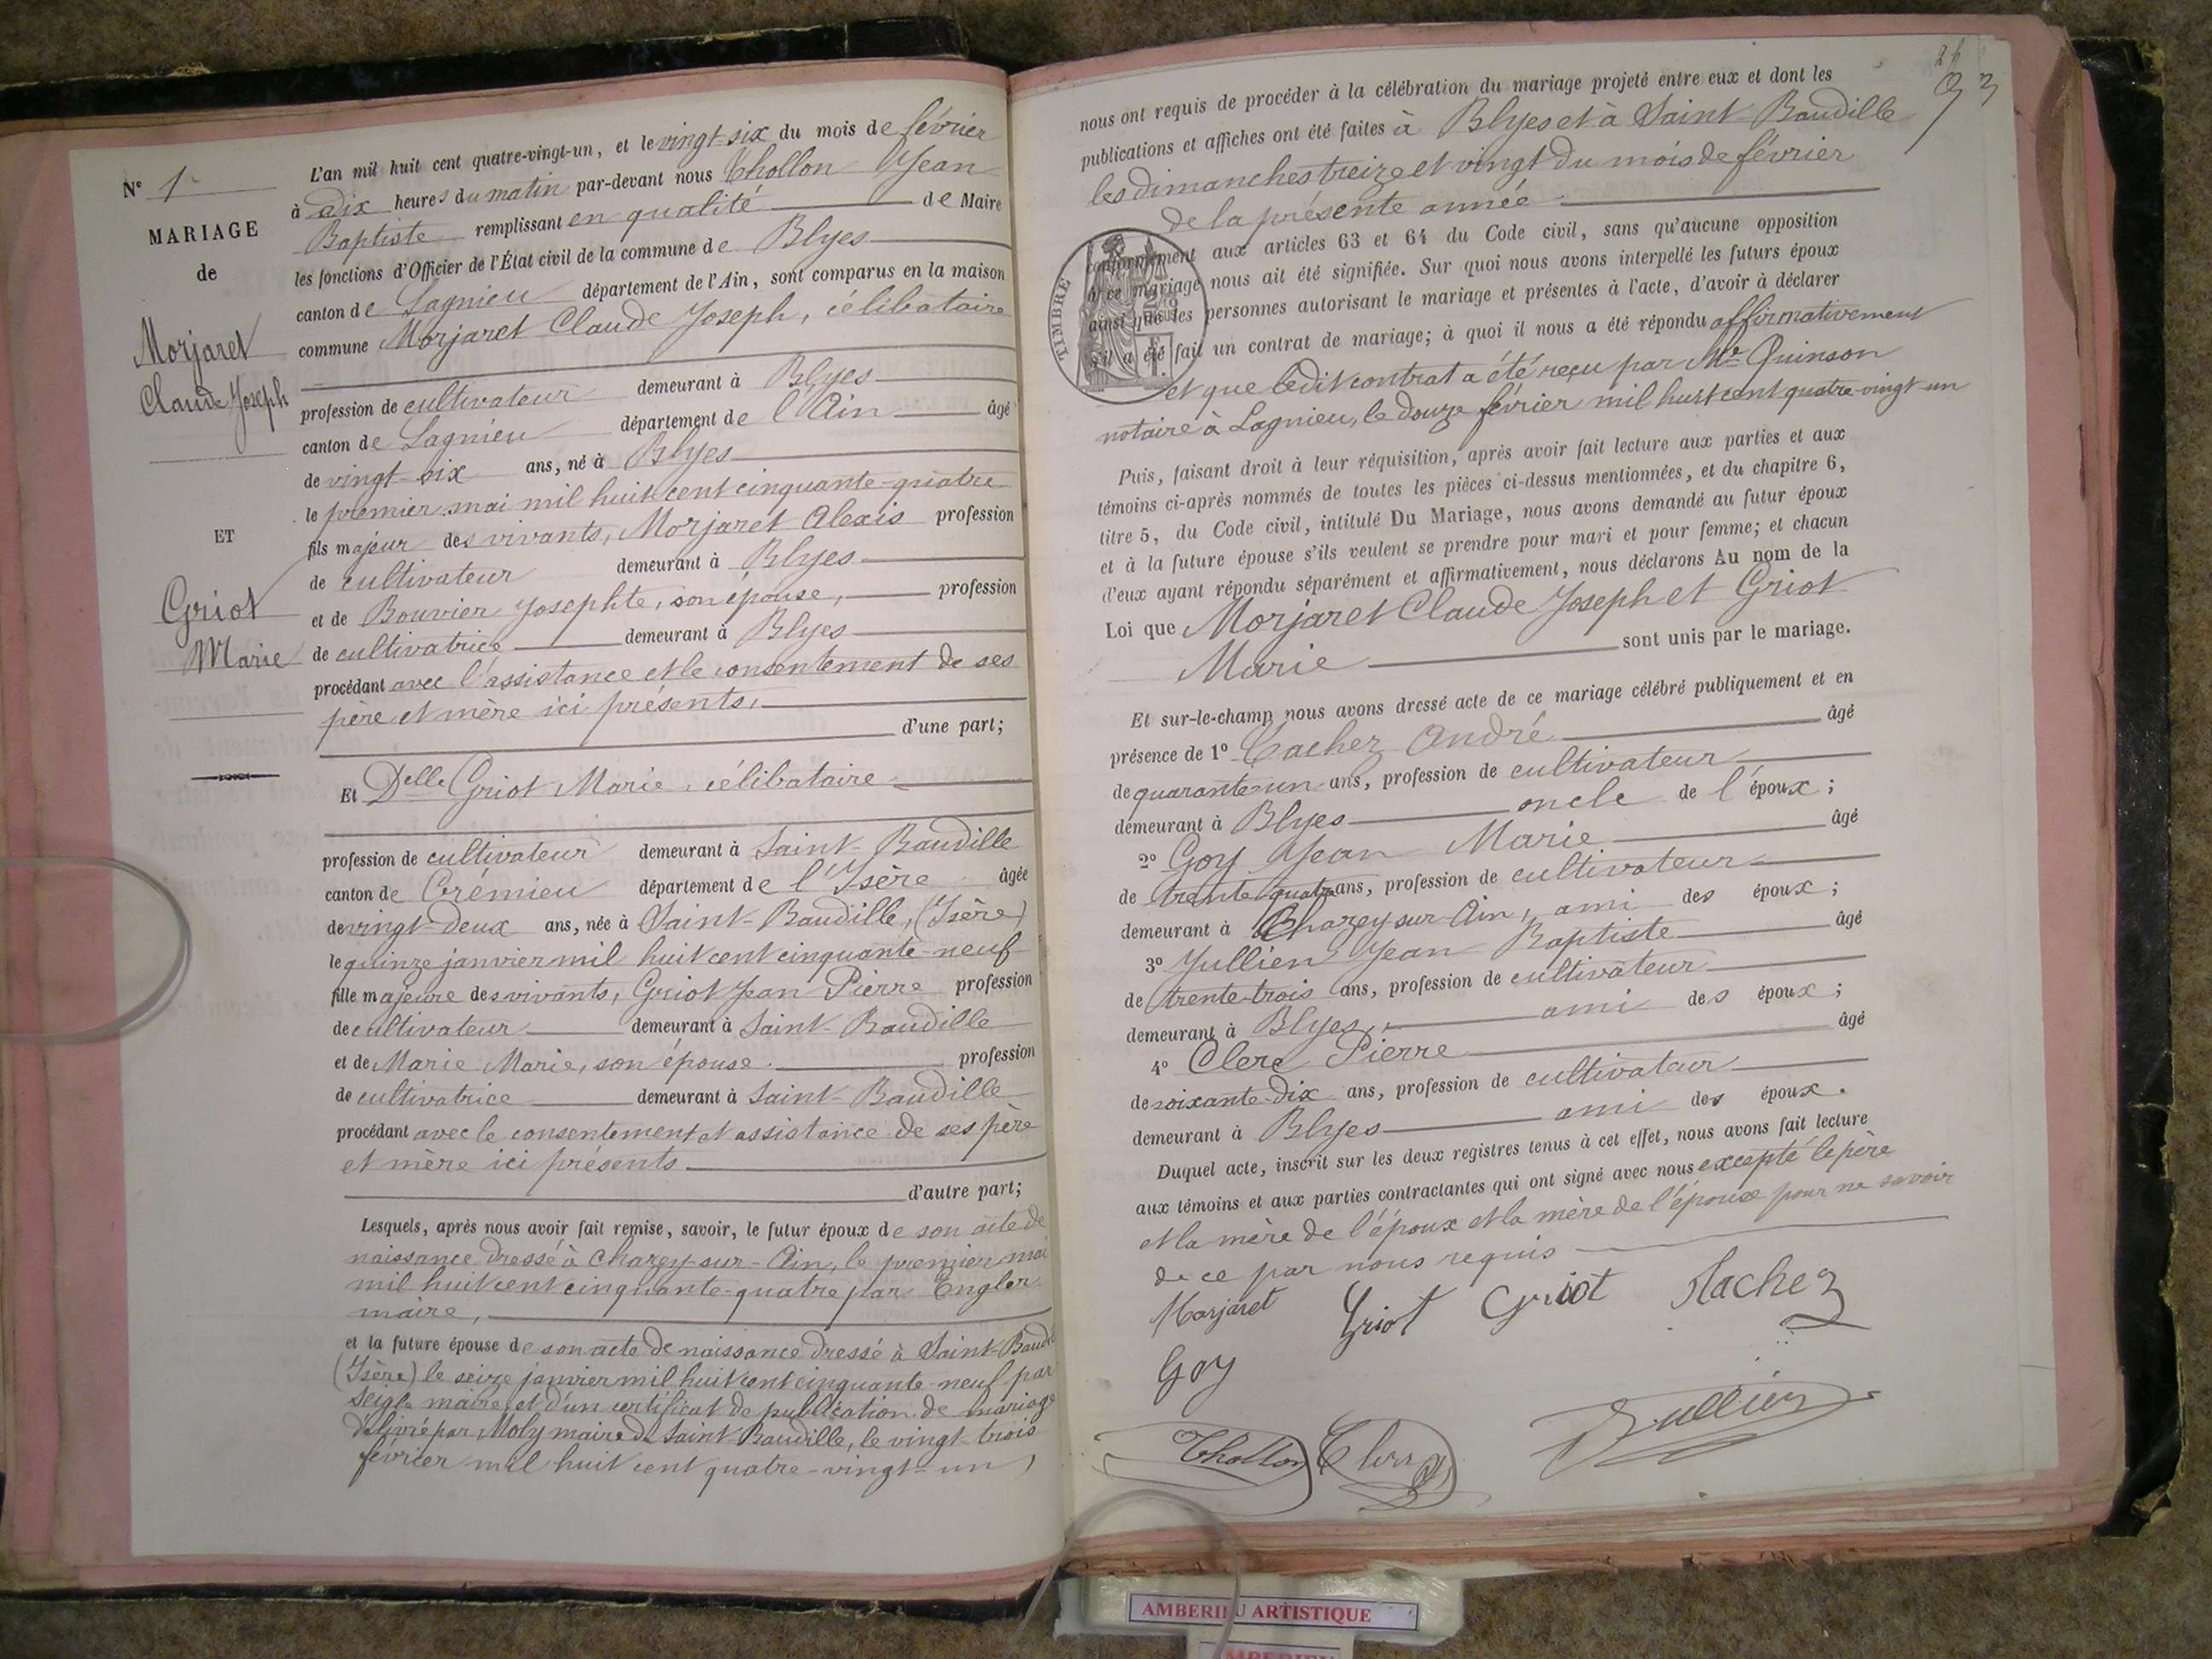 N° 1
MARIAGE
de
Morjaret
Claude Joseph
ET
Griot
Marie
L'an mil huit cent quatre-vingt-un, et le vingt-six du mois de février
à dix heures du matin par-devant nous Thollon Jean
Baptiste remplissant en qualité de Maire
les fonctions d'Officier de l'État civil de la commune de Blyes
canton de Lagnieu département de l'Ain, sont comparus en la maison
commune Morjaret Claude Joseph, célibataire
profession de cultivateur demeurant à Blyes
canton de Lagnieu département de l'Ain âgé
de vingt-six ans, né à Blyes
le premier mai mil huit cent cinquante-quatre
fils majeur des vivants, Morjaret Alexis profession
de cultivateur demeurant à Blyes
et de Bouvier Josephte, son épouse, profession
de cultivatrice demeurant à Blyes
procédant avec l'assistance et le consentement de ses
père et mère ici présents,
d'une part;
Et Delle Griot Marie, célibataire
profession de cultivateur demeurant à Saint-Baudille
canton de Crémieu département de l'Isère âgée
de vingt-deux ans, née à Saint-Baudille, (Isère)
le quinze janvier mil huit cent cinquante-neuf
fille majeure des vivants, Griot Jean Pierre profession
de cultivateur demeurant à Saint-Baudille
et de Marie Marie, son épouse. profession
de cultivatrice demeurant à Saint-Baudille
procédant avec le consentement et assistance de ses père
et mère ici présents
d'autre part;
Lesquels, après nous avoir fait remise, savoir, le futur époux de son acte de
naissance dressé à Chazey-sur-Ain, le premier mai
mil huit cent cinquante-quatre par Engler
maire,
et la future épouse de son acte de naissance dressé à Saint-Baudi
(Isère) le seize janvier mil huit cent cinquante-neuf par
Seigle maire, et d'un certificat de publication de mariage
délivré par Moly maire de Saint-Baudille, le vingt-trois
février mil huit cent quatre-vingt-un,
24
93
nous ont requis de procéder à la célébration du mariage projeté entre eux et dont les
publications et affiches ont été faites à Blyes et à Saint-Baudille
les dimanches treize et vingt du mois de février
de la présente année
conformément aux articles 63 et 64 du Code civil, sans qu'aucune opposition
à ce mariage nous ait été signifiée. Sur quoi nous avons interpellé les futurs époux
ainsi que les personnes autorisant le mariage et présentes à l'acte, d'avoir à déclarer
s'il a été fait un contrat de mariage; à quoi il nous a été répondu affirmativement
et que ledit contrat a été reçu par Me Quinson
notaire à Lagnieu, le douze février mil huit cent quatre-vingt-un
TIMBRE
Puis, faisant droit à leur réquisition, après avoir fait lecture aux parties et aux
témoins ci-après nommés de toutes les pièces ci-dessus mentionnées, et du chapitre 6,
titre 5, du Code civil, intitulé Du Mariage, nous avons demandé au futur époux
et à la future épouse s'ils veulent se prendre pour mari et pour femme; et chacun
d'eux ayant répondu séparément et affirmativement, nous déclarons Au nom de la
Loi que Morjaret Claude Joseph et Griot
Marie sont unis par le mariage.
Et sur-le-champ nous avons dressé acte de ce mariage célébré publiquement et en
présence de 1° Tacher André âgé
de quarante-un ans, profession de cultivateur
demeurant à Blyes oncle de l'époux;
2° Goy Jean Marie âgé
de trente-quatre ans, profession de cultivateur
demeurant à Chazey-sur-Ain, ami des époux;
3° Jullien Jean Baptiste âgé
de trente-trois ans, profession de cultivateur
demeurant à Blyes, ami des époux;
4° Clerc Pierre âgé
de soixante-dix ans, profession de cultivateur
demeurant à Blyes ami des époux.
Duquel acte, inscrit sur les deux registres tenus à cet effet, nous avons fait lecture
aux témoins et aux parties contractantes qui ont signé avec nous excepté le père
et la mère de l'époux et la mère de l'épouse pour ne savoir
de ce par nous requis
Morjaret Griot Griot Tacher
Goy
Thollon Clerc Jullien
AMBERIEU ARTISTIQUE
AMBERIEU